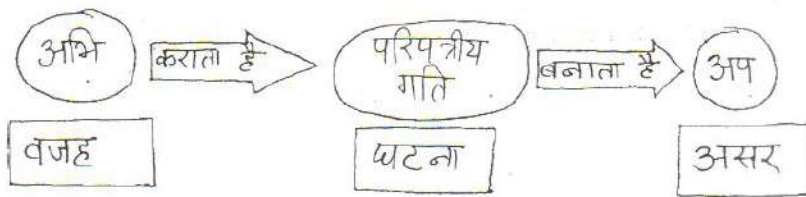 अभि
कराता है
परिपत्रीय
गति
बनाता है
अप
वजह
घटना
असर